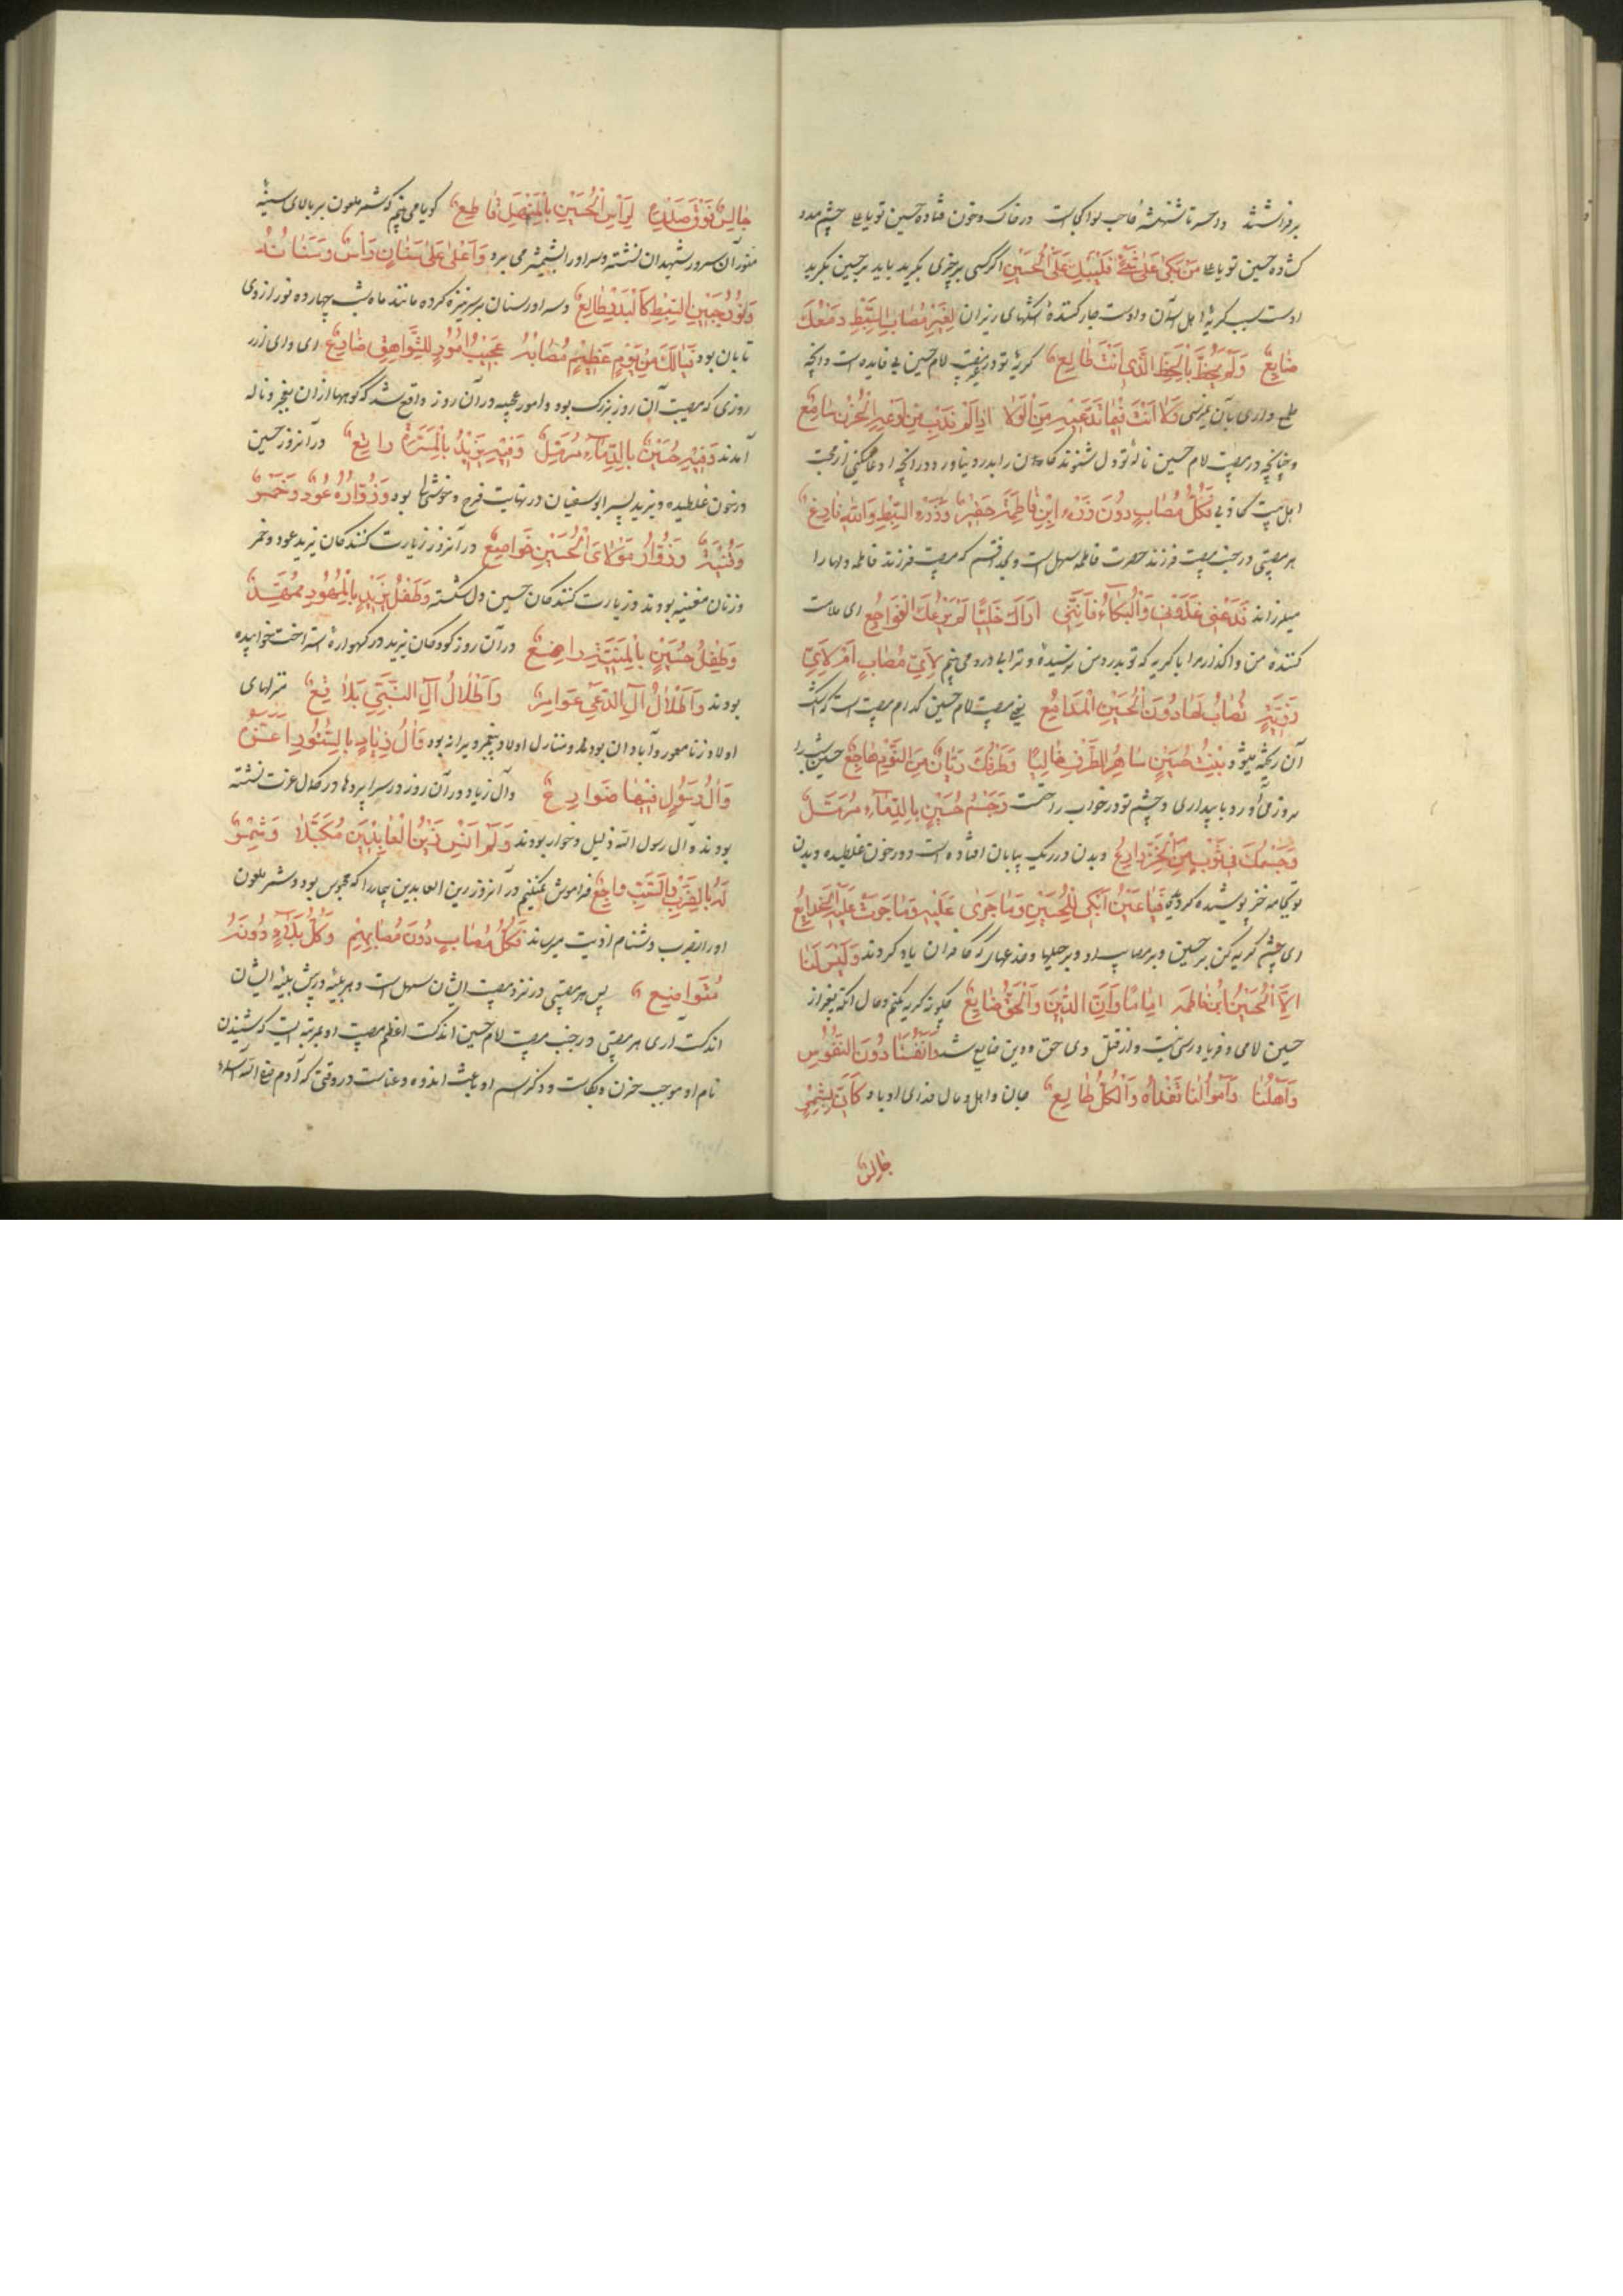 برفراشتند واحسرتا شهنشه صاحب لوا کجاست در خاک و خون فتاده حسین تو یا علی چشم مدد
گشاده حسین تو یا علی مَنْ بَکیٰ عَلیٰ شَیْءٍ فَلْیَبْکِ عَلَی الْحُسَیْنِ اگر کسی بر چیزی بگرید باید بر حسین بگرید
اوست سبب گریهٔ اهل آسمان و اوست جاری کنندهٔ اشکهای ریزان لِغَیْرِ مُصَابِ السِّبْطِ دَمْعُكَ
ضٰایِعٌ وَلَمْ یَحْظَ بِالْحَظِّ الَّذِی اَنْتَ طٰالِعٌ گریهٔ تو در غیر مصیبت امام حسین بی فایده است و آنچه
طمع داری بآن نمیرسی
و چنانچه در مصیبت امام حسین نالهٔ تو دل شنوندگان را بدرد نیاورد در آنچه ادعا میکنی از محبت
اهل بیت کاذبی فَکُلُّ مُصٰابٍ دُونَ رُزْءِ ابْنِ فٰاطِمَةَ حَقِیرٌ وَرُزْءُ السِّبْطِ وَاللهِ فٰادِعٌ
هر مصیبتی در جنب مصیبت فرزند حضرت فاطمه سهل است و بخدا قسم که مصیبت فرزند فاطمه دلها را
میلرزاند فَدَعْنِی عَذُولِی وَالْبُکٰاءَ فَاِنَّنِی اَرٰاكَ خَلِیًّا لَمْ تَرُعْكَ الْفَوٰاجِعُ ای ملامت
کنندهٔ من واگذار مرا با گریه که تو بدرد من نرسیدهٔ و ترا بی درد می بینم لِاَیِّ مُصٰابٍ اَمْ لِاَیِّ
رَزِیَّةٍ تُصٰابُ لَهٰا دُونَ الْحُسَیْنِ الْمَدٰامِعُ بغیر مصیبت امام حسین کدام مصیبت است که اشک
آن ریخته میشود یَبِیتُ حُسَیْنٌ سٰاهِرَ الطَّرْفِ خٰائِفًا وَطَرْفُكَ رَیّٰانٌ مِنَ النَّوْمِ هٰاجِعٌ حسین شب را
بروز می آورد با بیداری و چشم تو در خواب راحت وَجِسْمُ حُسَیْنٍ بِالدِّمٰاءِ مُرَمَّلٌ
وَجِسْمُكَ فِی ثَوْبٍ مِنَ الْخَزِّ دٰارِعٌ و بدن او در ریگ بیابان افتاده است و در خون غلطیده و بدن
تو بجامه خز پوشیده گردیده فَیٰا عَیْنُ اَبْکِی لِلْحُسَیْنِ وَمٰا جَرٰی عَلَیْهِ وَمٰا جَرَتْ عَلَیْهِ الْخَدٰایِعُ
ای چشم گریه کن بر حسین و بر مصایب او و بر حیلها و خدعها که کافران باو کردند وَلَیْسَ لَنٰا
اِلَّا الْحُسَیْنُ ابْنُ فٰاطِمَةَ اِمٰامًا وَاِنَّ الدِّینَ وَالْحَقَّ ضٰایِعٌ چگونه گریه نکنم و حال آنکه بغیر از
حسین امامی و فریادرسی نیست و از قتل وی حق و دین ضایع شد وَاَنْفُسُنٰا دُونَ النُّفُوسِ
وَاَهْلُنٰا وَاَمْوٰالُنٰا تَفْدٰاهُ وَالْکُلُّ طٰایِعٌ جان و اهل و مال فدای او باد کَاَنِّی بِشِمْرٍ
جٰالِسٌ
جٰالِسٌ فَوْقَ صَدْرِهِ لِرَأْسِ الْحُسَیْنِ بِالْمُهَنَّدِ قٰاطِعٌ گویا می بینم که شمر ملعون بر بالای سینهٔ
منور آن سرور شهیدان نشسته و سر او را بشمشیر می برد وَاَعْلیٰ عَلیٰ سِنٰانٍ رَأْسَهُ سِنٰانُهُ
وَنُورُ جَبِینِ السِّبْطِ کَالْبَدْرِ طٰالِعٌ و سر او را سنان بر سر نیزه کرده مانند ماه شب چهارده نور از روی
تابان بود فَیٰالَكَ مِنْ یَوْمٍ عَظِیمٍ مُصٰابُهُ عَجِیبُ اُمُورٍ لِلشَّوٰاهِقِ صٰادِعٌ ای وای از
روزی که مصیبت آن روز بزرگ بود و امور عجیبه در آن روز واقع شد که کوهها از آن بفجر و ناله
آمدند وَفِیهِ حُسَیْنٌ بِالدِّمٰاءِ مُرَمَّلٌ وَفِیهِ یَزِیدُ بِالْمَسَرَّةِ رٰاتِعٌ در آنروز حسین
در خون غلطیده و یزید پسر ابوسفیان در نهایت فرح و خوشحال بود وَزُوّٰارُهُ عُودٌ وَخَمْرٌ
وَقَیْنَةٌ وَزُوّٰارُ مَوْلٰایَ الْحُسَیْنِ خَوٰاضِعٌ در آنروز زیارت کنندکان یزید عود و خمر
و زنان مغنیه بودند و زیارت کنندکان حسین دل شکسته وَطِفْلُ یَزِیدٍ بِالْمُهُودِ مُمَهَّدٌ
وَطِفْلُ حُسَیْنٍ بِالْمَنِیَّةِ رٰاضِعٌ در آن روز کودکان یزید در گهوارهٔ استراحت خوابیده
بودند وَاَطْلٰالُ آلِ الدَّعِیِّ عَوٰامِرٌ وَاَطْلٰالُ آلِ النَّبِیِّ بَلٰاقِعٌ منزلهای
اولاد زنا معمور و آبادان بودند و منازل اولاد پیغمبر ویرانه بود وَآلُ زِیٰادٍ بِالسُّتُورِ اَعِزَّةٌ
وَآلُ رَسُولٍ فِیهٰا ضَوٰارِعٌ و آل زیاد در آن روز در سراپردها در کمال عزت نشسته
بودند و آل رسول الله ذلیل و خوار بودند وَلَمْ اَنْسَ زَیْنَ الْعٰابِدِینَ مُکَبَّلًا وَشِمْرٌ
لَهُ بِالضَّرْبِ بِالسَّبِّ وٰاجِعٌ فراموش نمیکنم در آنروز زین العابدین بیمار را که محبوس بود و شمر ملعون
او را بضرب و دشنام اذیت میرساند فَکُلُّ مُصٰابٍ دُونَ مُصٰابِهِمْ وَکُلُّ بَلٰاءٍ دُونَهُ
مُتَوٰاضِعٌ پس هر مصیبتی در نزد مصیبت ایشان سهل است و هر بلیه در پیش بلیهٔ ایشان
اندکست آری هر مصیبتی در جنب مصیبت امام حسین اندکست اعظم مصیبت او بمرتبه ایست که شنیدن
نام او موجب حزن و بکاست و ذکر اسم او باعث اندوه و عناست در وقتی که آدم صفی الله